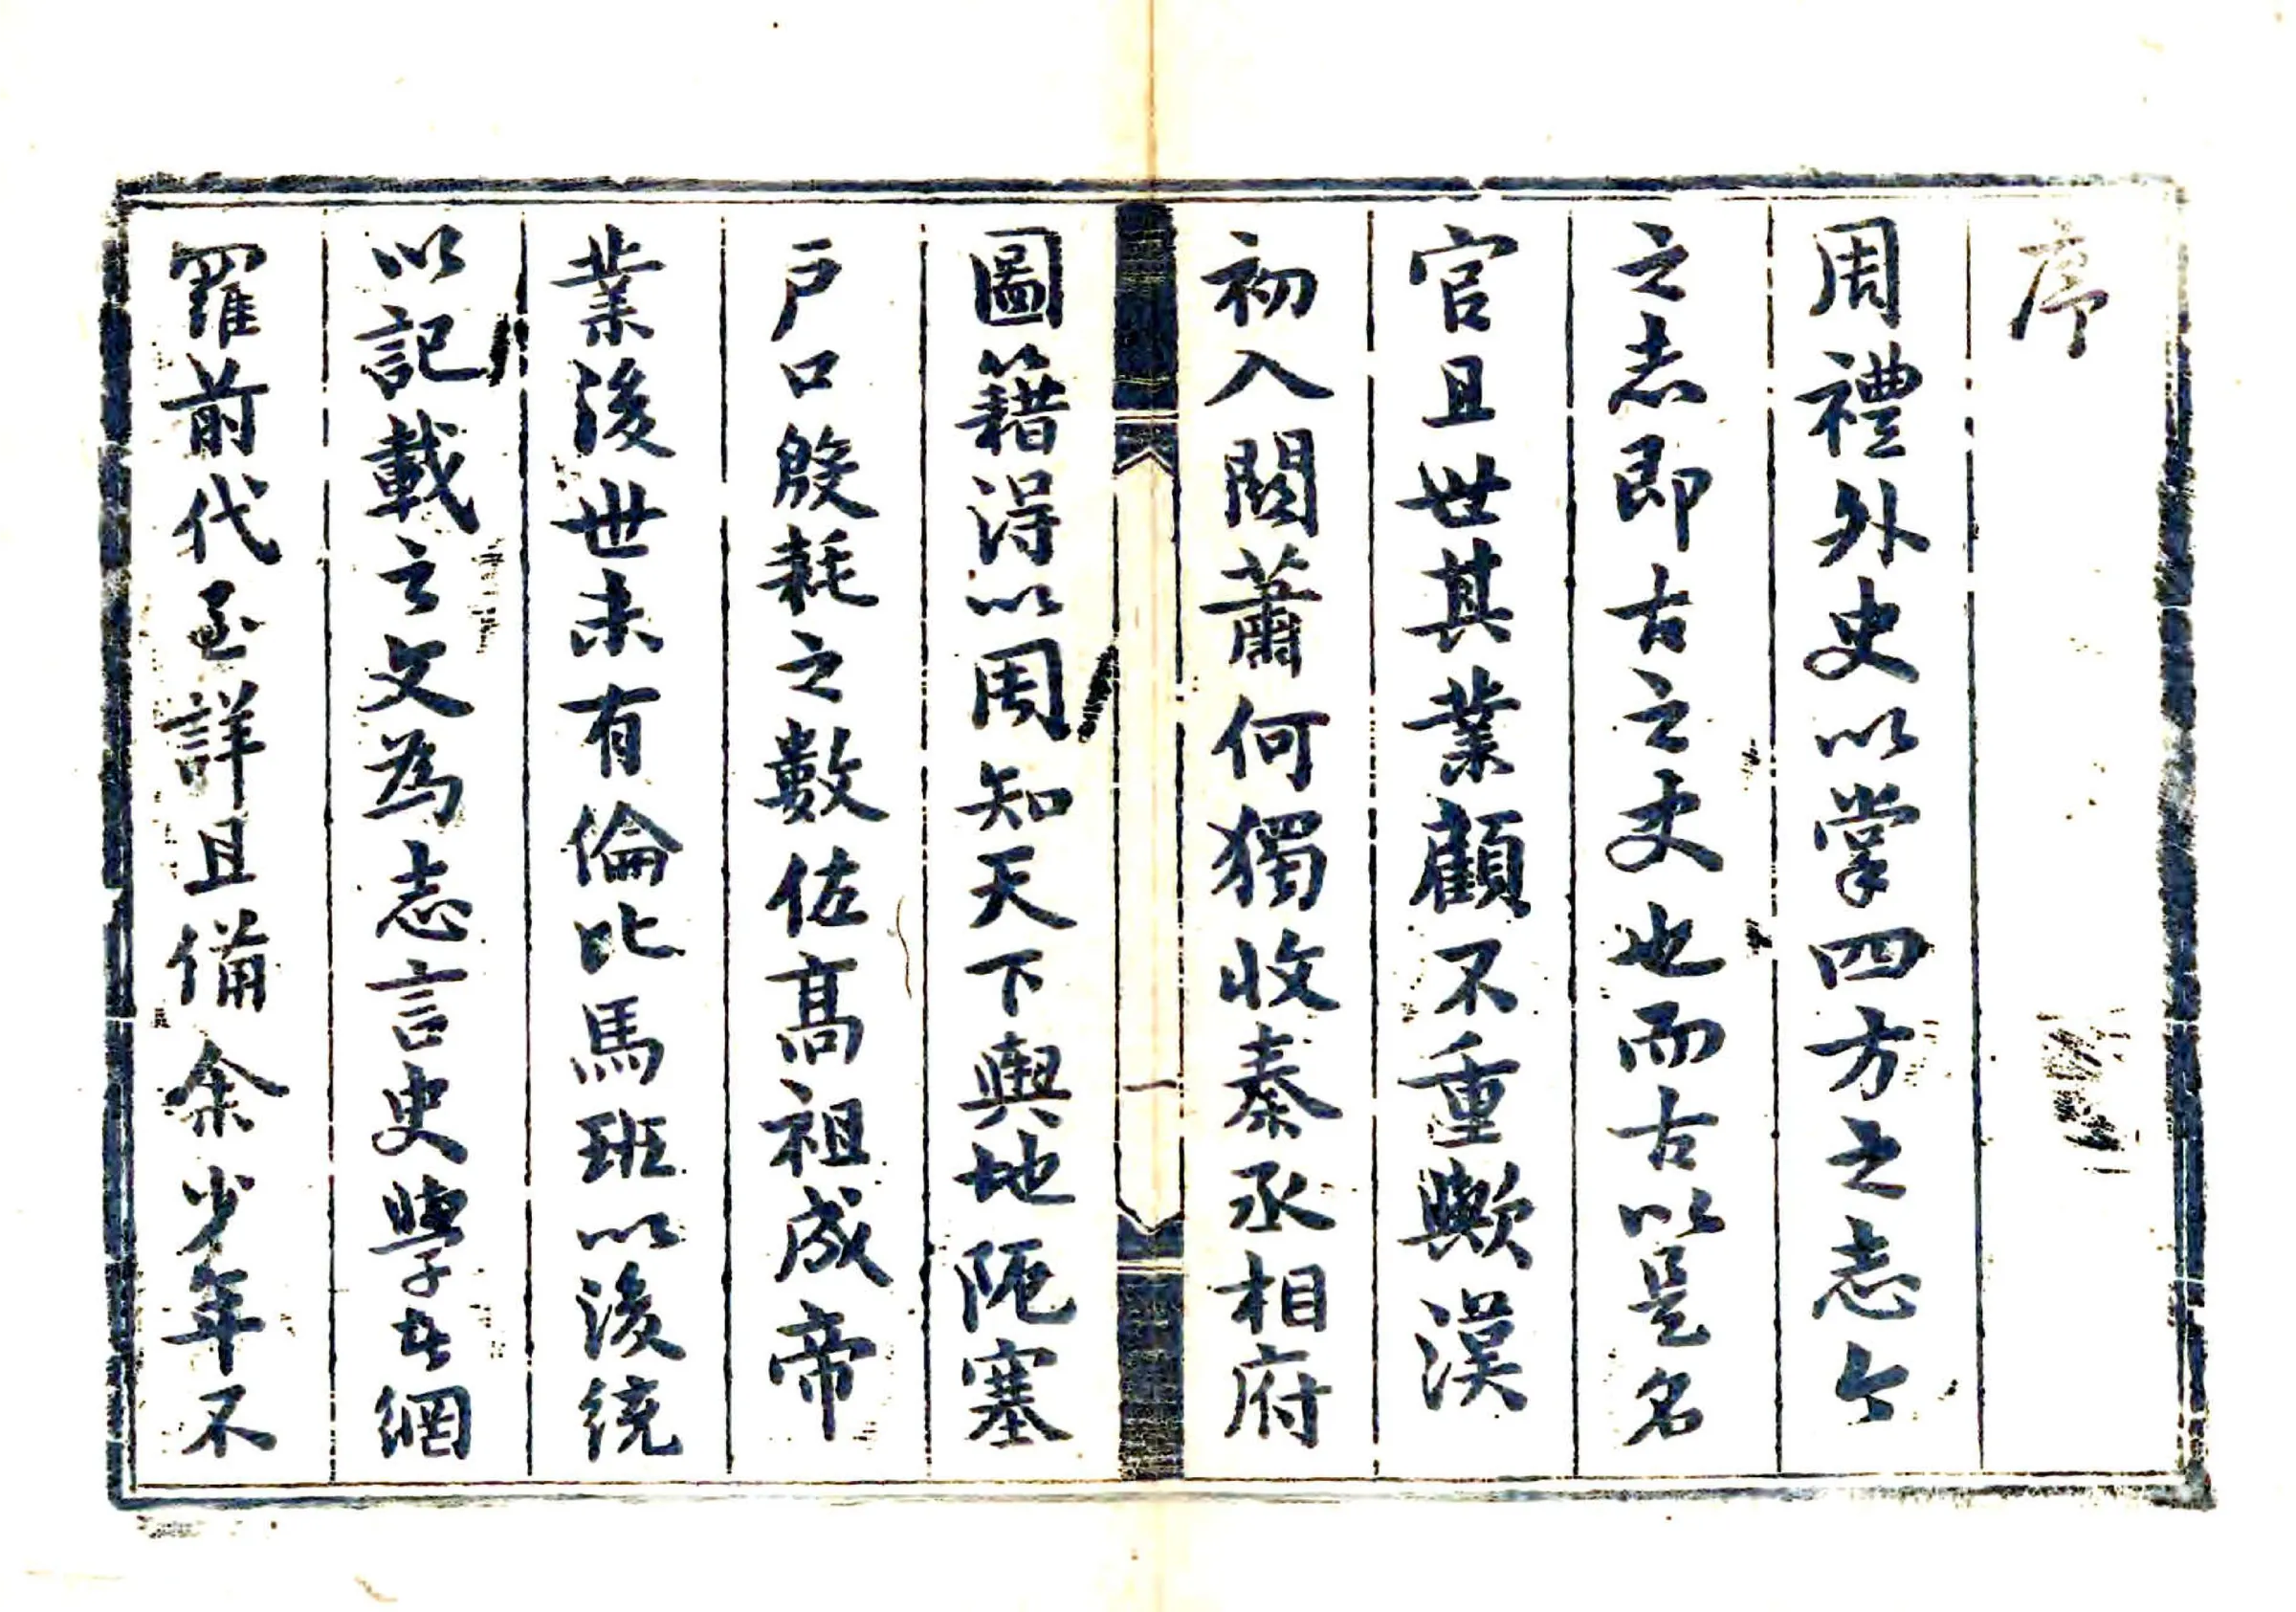 序
周禮外史以掌四方之志今
之志即古之史也而古以是名
官且世其業顧不重歟漢
初入關蕭何獨收秦丞相府
圖籍得以周知天下輿地阨塞
戶口殷耗之數佐高祖成帝
業後世未有倫比馬班以後統
以記載之文為志言史學者網
羅前代至詳且備余少年不
一